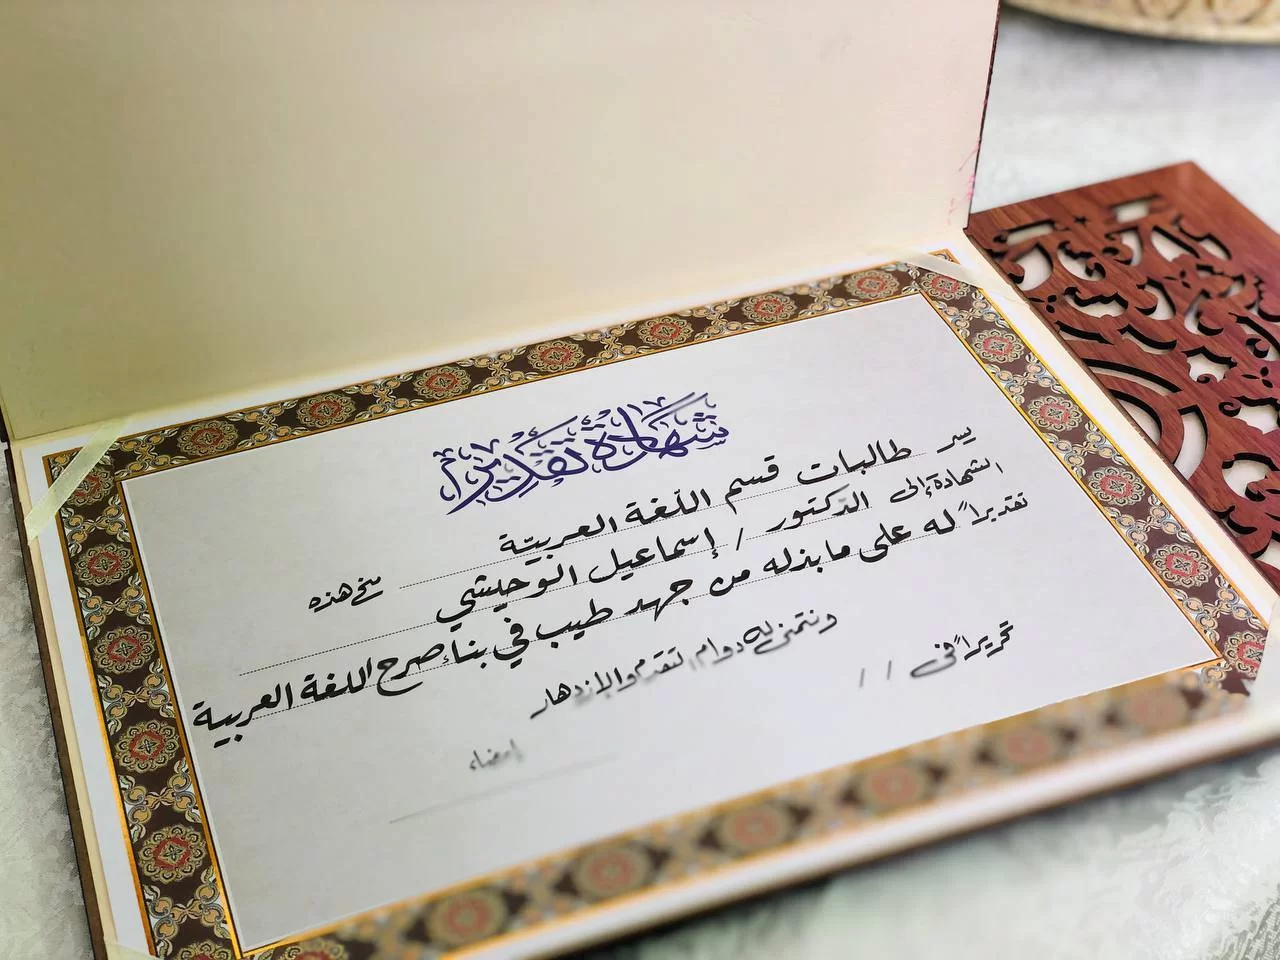 شهادة تقدير
يسر طالبات قسم اللّغة العربيّة منح هذه
الشهادة إلى الدّكتور / إسماعيل الوحيشي
تقديراً له على ما بذله من جهد طيب في بناء صرح اللغة العربية
ونتمنى له دوام التقدم والإزدهار
تحريراً في / /
إمضاء